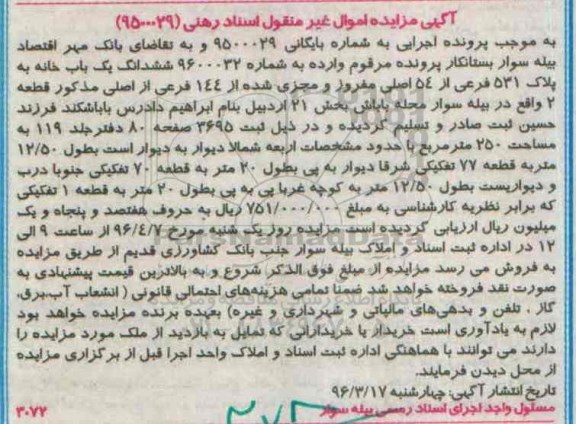 آگهی مزایده اموال غیر منقول اسناد رهنی (۹۵۰۰۰۲۹)
به موجب پرونده اجرایی به شماره بایگانی ۹۵۰۰۰۲۹ و به تقاضای بانک مهر اقتصاد
بیله سوار بستانکار پرونده مرقوم وارده به شماره ۹۶۰۰۰۳۲ ششدانگ یک باب خانه به
پلاک ۵۳۱ فرعی از ۵۴ اصلی مفروز و مجزی شده از ۱۴۴ فرعی از اصلی مذکور قطعه
۲ واقع در بیله سوار محله باباش بخش ۲۱ اردبیل بنام ابراهیم دادرس باباشکند فرزند
حسین ثبت صادر و تسلیم گردیده و در ذیل ثبت ۳۶۹۵ صفحه ۸۰ دفترجلد ۱۱۹ به
مساحت ۲۵۰ مترمربع با حدود مشخصات اربعه شمالا دیوار به دیوار است بطول ۱۲/۵۰
متربه قطعه ۷۷ تفکیکی شرقا دیوار به پی بطول ۲۰ متر به قطعه ۷۰ تفکیکی جنوبا درب
و دیواریست بطول ۱۲/۵۰ متر به کوچه غربا پی به پی بطول ۲۰ متر به قطعه ۱ تفکیکی
که برابر نظریه کارشناسی به مبلغ ۷۵۱/۰۰۰/۰۰۰ ریال به حروف هفتصد و پنجاه و یک
میلیون ریال ارزیابی گردیده است مزایده روز یک شنبه مورخ ۹۶/۴/۷ از ساعت ۹ الی
۱۲ در اداره ثبت اسناد و املاک بیله سوار جنب بانک کشاورزی قدیم از طریق مزایده
به فروش می رسد مزایده از مبلغ فوق الذکر شروع و به بالاترین قیمت پیشنهادی به
صورت نقد فروخته خواهد شد ضمنا تمامی هزینه‌های احتمالی قانونی ( انشعاب آب،برق،
گاز ، تلفن و بدهی‌های مالیاتی و شهرداری و غیره) بعهده برنده مزایده خواهد بود
لازم به یادآوری است خریدار یا خریدارانی که تمایل به بازدید از ملک مورد مزایده را
دارند می توانند با هماهنگی اداره ثبت اسناد و املاک واحد اجرا قبل از برگزاری مزایده
از محل دیدن فرمایند.
تاریخ انتشار آگهی: چهارشنبه ۹۶/۳/۱۷
مسئول واحد اجرای اسناد رسمی بیله سوار
۳۰۷۲